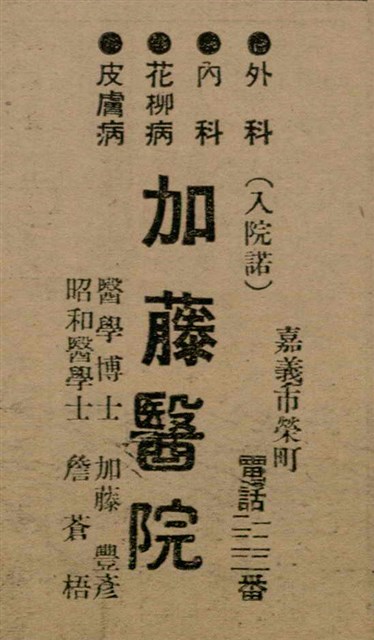 外科
內科
花柳病
皮膚病
嘉義市榮町
(入院諾)
電話 番
加藤醫院
醫學博士 加藤豐彥
昭和醫學士 詹蒼梧